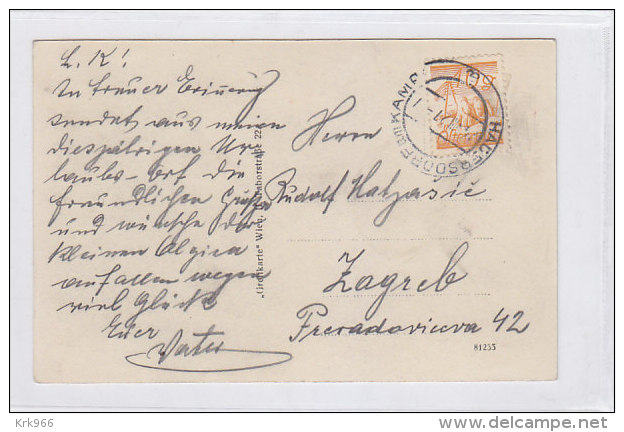 L. K!
In treuer Erinnerung
sendet aus meinem
diesjährigen Ur-
laubs-ort die
freundlichen Grüße
und wünsche der
kleinen Olgica
auf allen wegen
viel Glück
Euer
Vater
"Iris-Karte" Wien,
straße 22
Herrn
Rudolf Hatzašić
Zagreb
Preradovićeva 42
81235
HADERSDORF AM KAMP
Krk966
www.delcampe.net